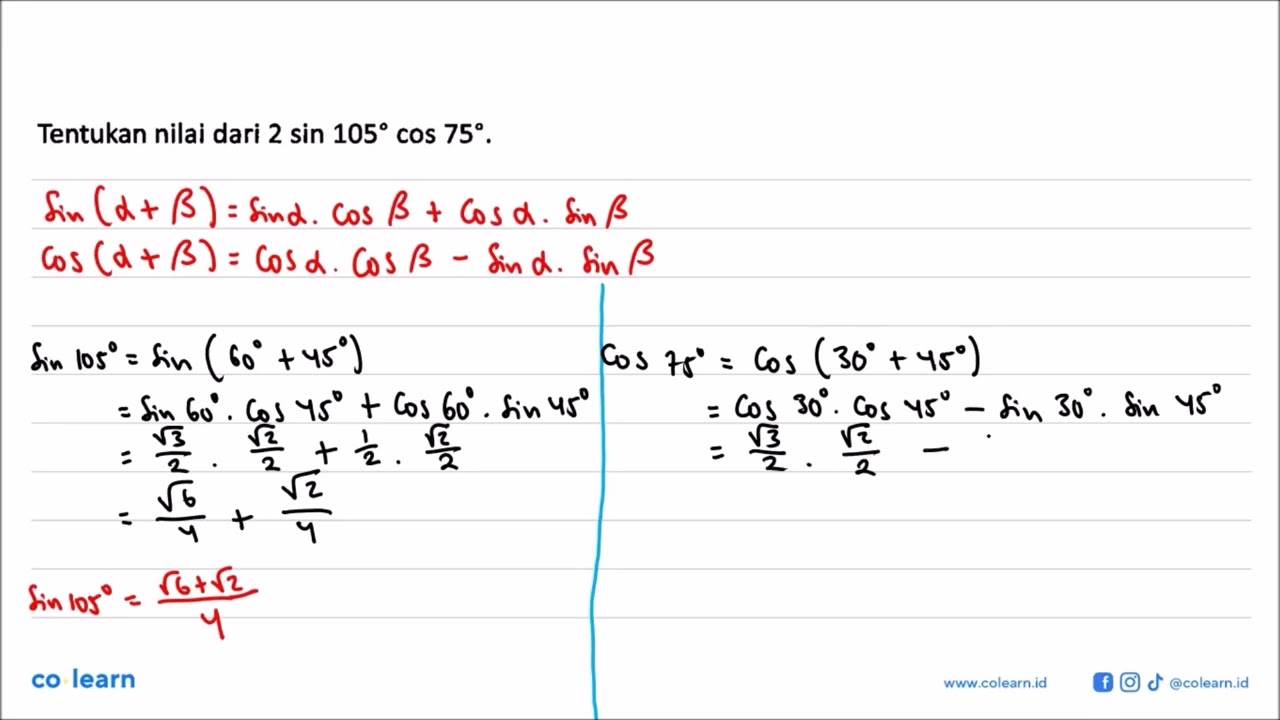 Tentukan nilai dari 2 sin 105° cos 75°.
sin (α + β) = sin α . cos β + cos α . sin β
cos (α + β) = cos α . cos β − sin α . sin β
sin 105° = sin (60° + 45°)
= sin 60° . cos 45° + cos 60° . sin 45°
= √3/2 . √2/2 + 1/2 . √2/2
= √6/4 + √2/4
sin 105° = √6+√2/4
cos 75° = cos (30° + 45°)
= cos 30° . cos 45° − sin 30° . sin 45°
= √3/2 . √2/2 −
co learn
www.colearn.id
@colearn.id